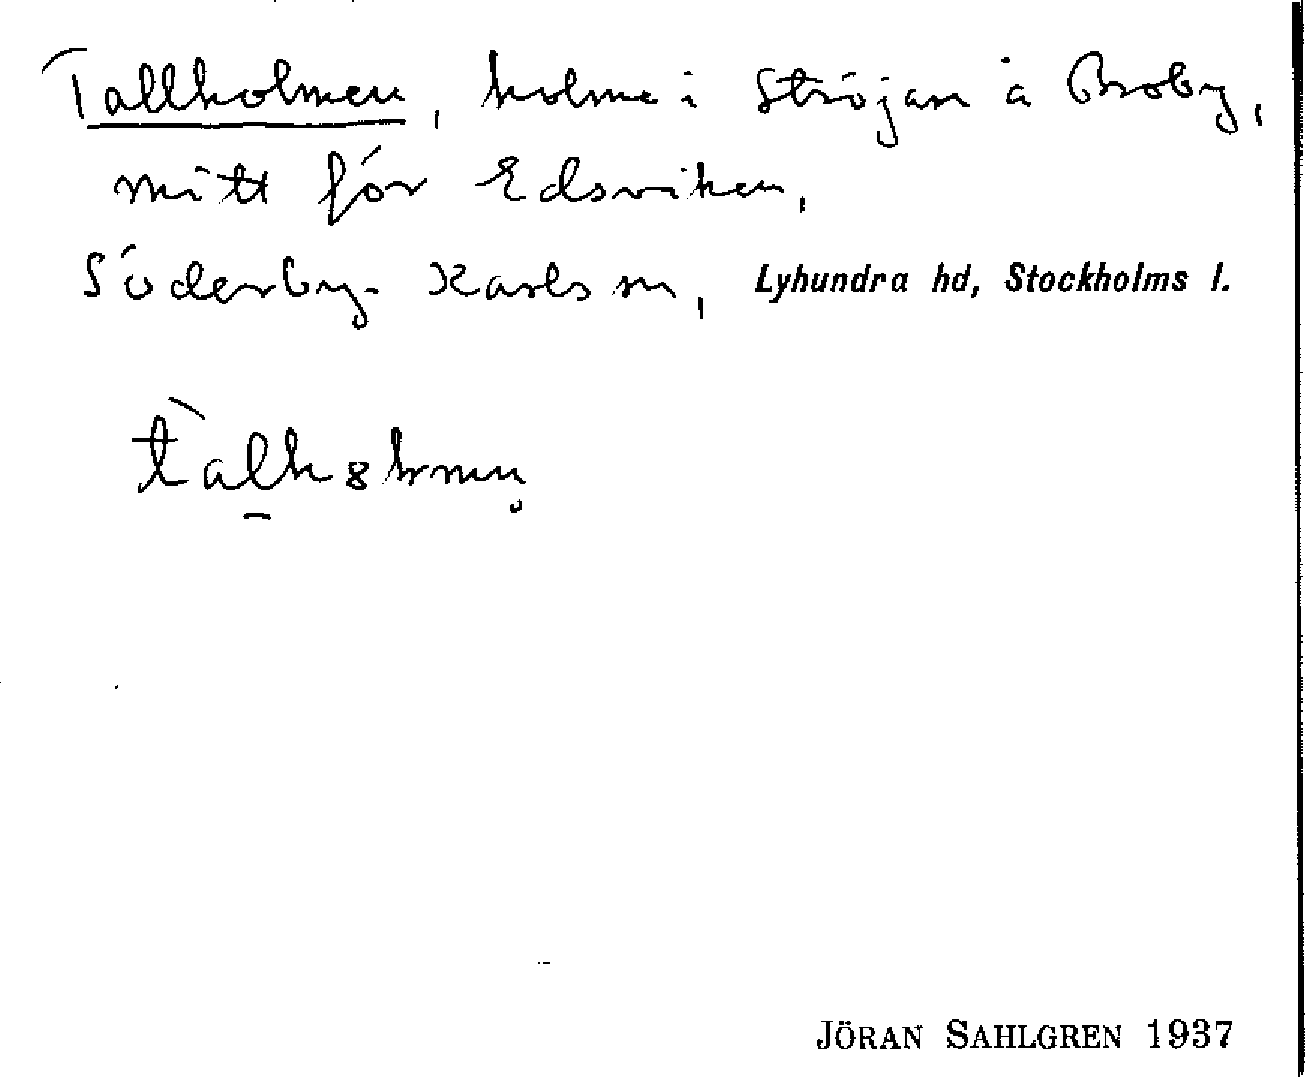 Tallholmen, holme i Ströjan å Broby,
mitt för Edsviken,
Söderby-Karls sn, Lyhundra hd, Stockholms l.
JÖRAN SAHLGREN 1937